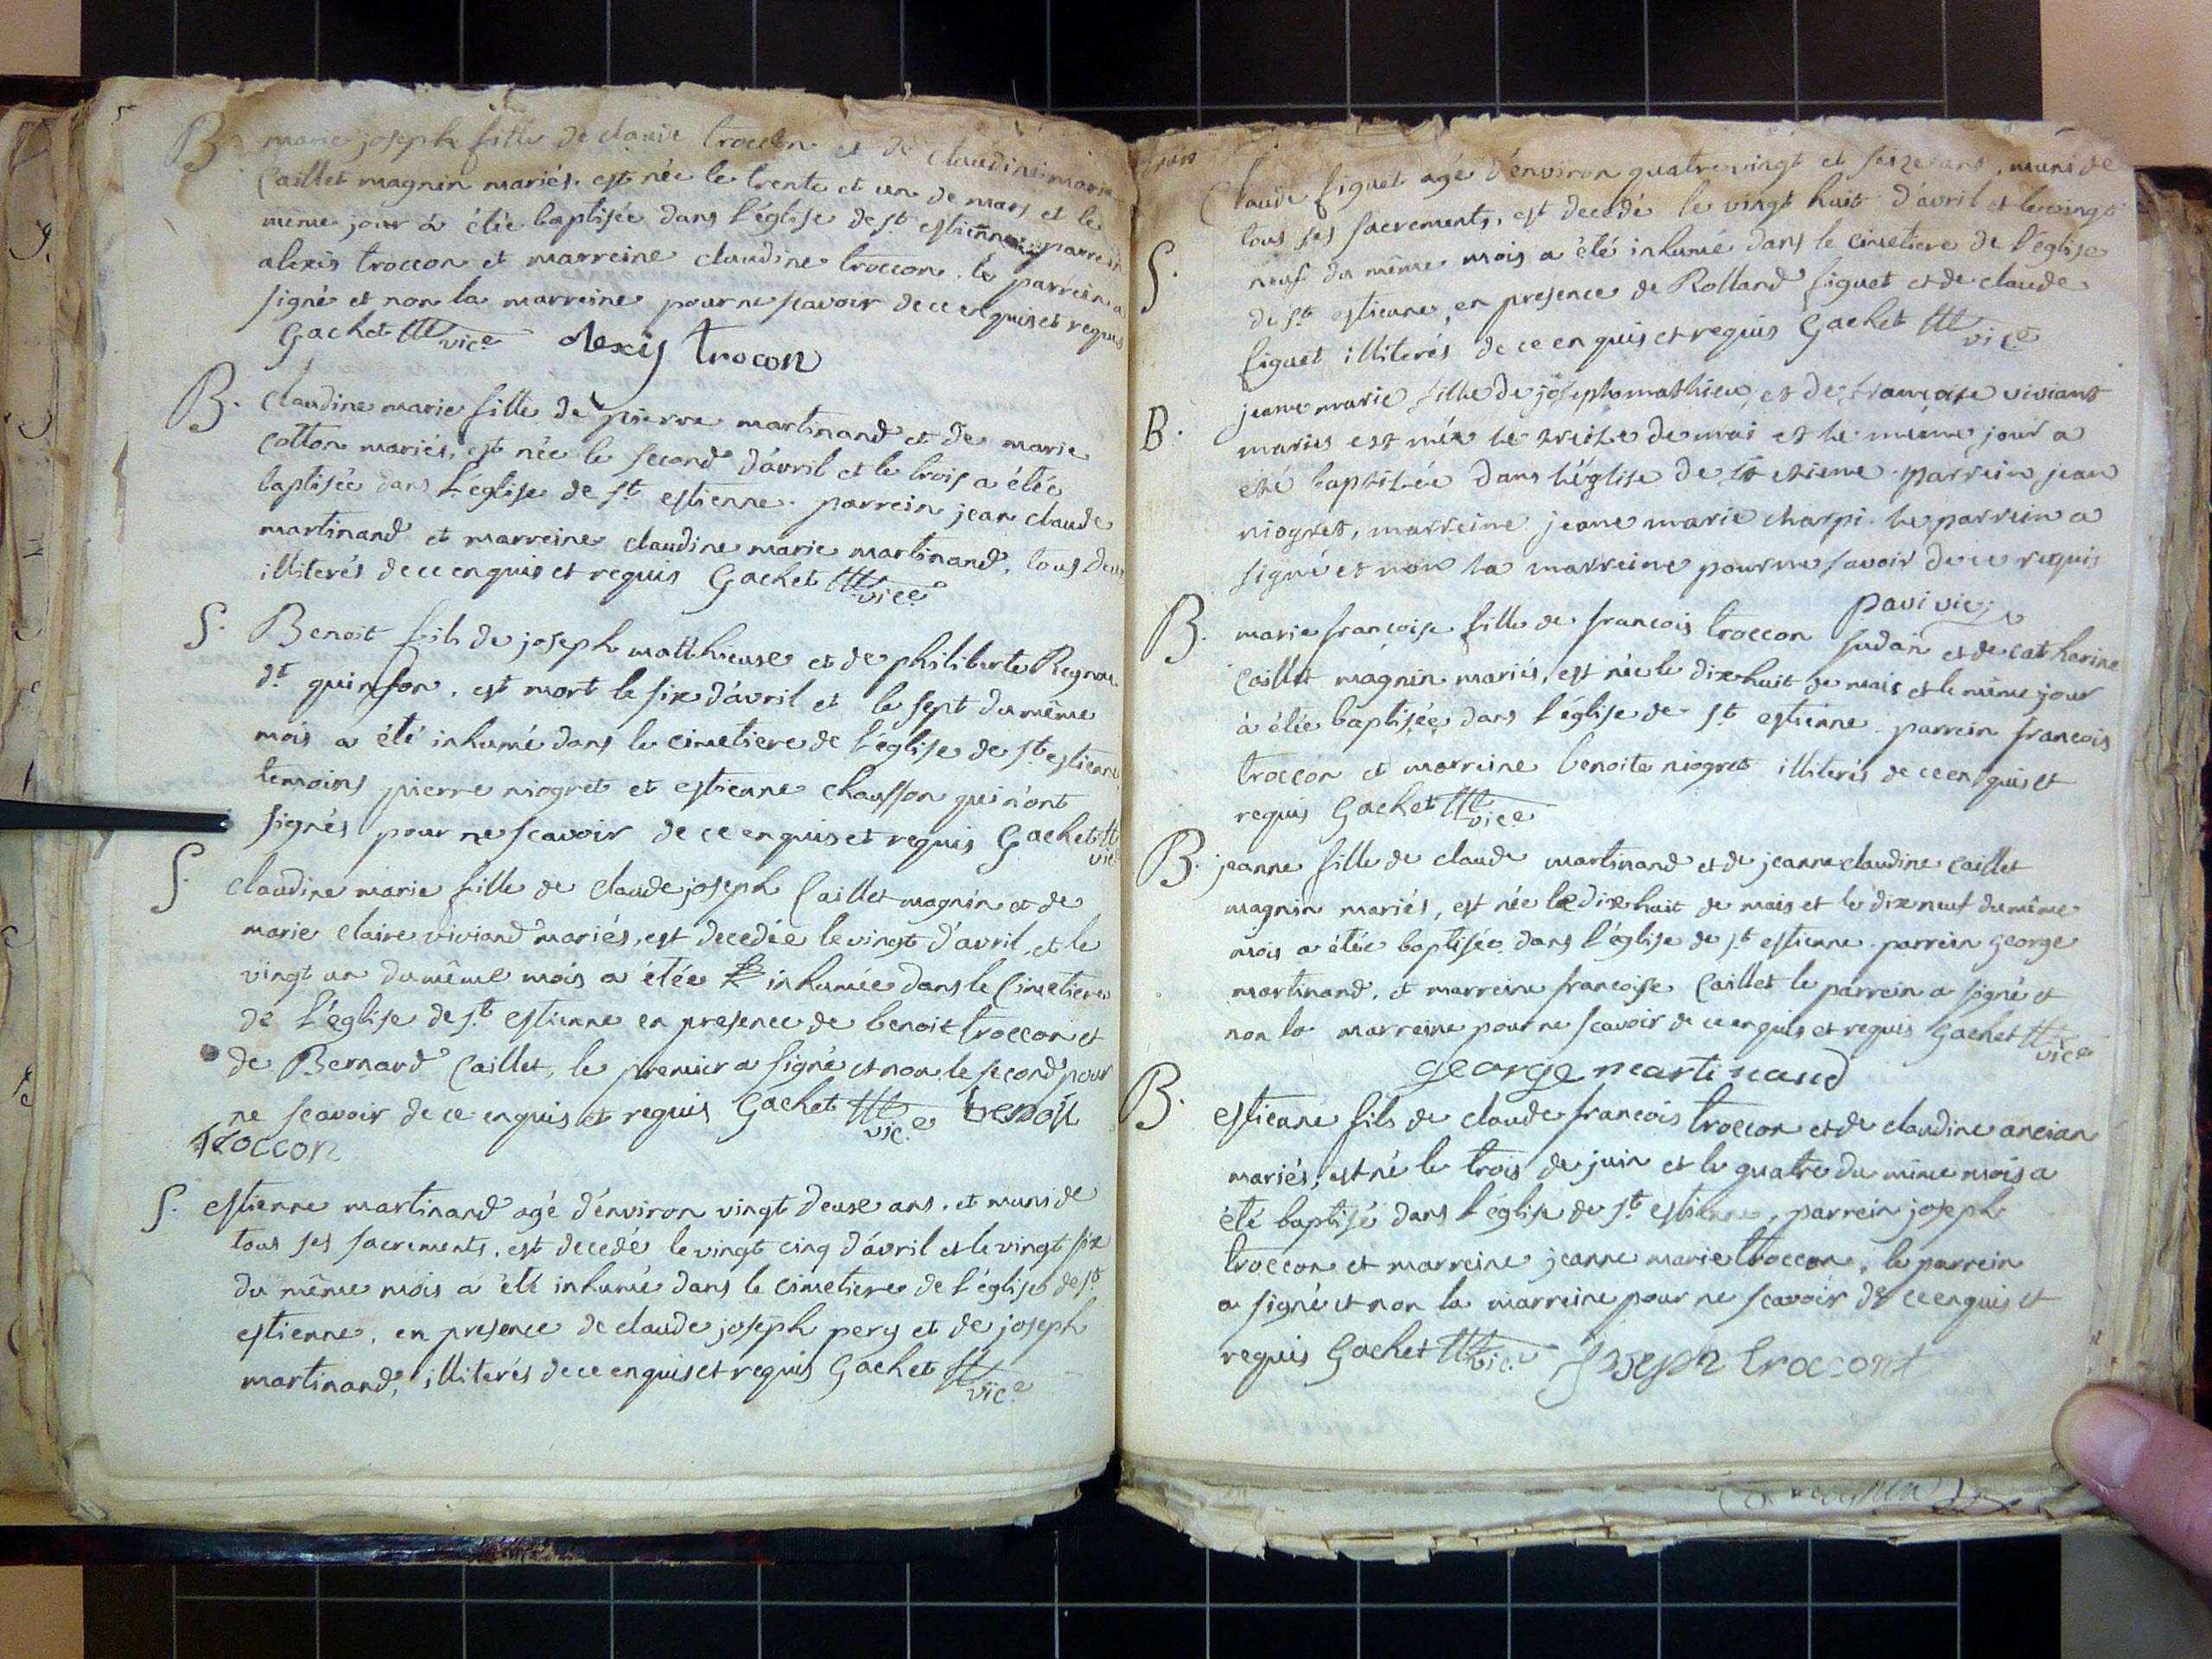 B. marie joseph fille de claude troccon et de claudine marie
Caillet magnin mariés. est née le trente et un de mars et le
même jour a étée baptisée dans l'église de st estienne parrein
alexis troccon et marreine claudine troccon. le parrein a
signé et non la marreine pour ne scavoir de ce enquis et requis
Gachet vice alexiy trocon
B. Claudine marie fille de pierre martinand et de marie
Cotton mariés, est née le second d'avril et le trois a étée
baptisée dans l'eglise de st estienne. parrein jean claude
martinand et marreine claudine marie martinand, tous deux
illiterés de ce enquis et requis Gachet vice
S. Benoit fils de joseph matthieuse et de philiberte Regnau
dt quinson, est mort le six d'avril et le sept du même
mois a été inhumé dans le cimetiere de l'église de st estienne
temoins pierre niogret et estienne chausson qui n'ont
signés pour ne scavoir de ce enquis et requis Gachet vice
S. claudine marie fille de claude joseph Caillet magnin et de
marie claire viviand mariés, est decedée le vingt d'avril, et le
vingt un du même mois a étée inhumée dans le Cimetiere
de l'église de st estienne en presence de benoit troccon et
de Bernard Caillet, le premier a signé et non le second pour
ne scavoir de ce enquis et requis Gachet vice benoit
troccon
S. estienne martinand agé d'environ vingt deuse ans, et muni de
tous ses sacrements, est decedé le vingt cinq d'avril et le vingt six
du même mois a été inhumé dans le cimetiere de l'église de st
estienne, en presence de claude joseph pery et de joseph
martinand, illiterés de ce enquis et requis Gachet vice
Claude figuet agé d'environ quatre vingt et seize ans, muni de
tous ses sacrements, est decedé le vingt huit d'avril et le vingt
S. neuf du même mois a été inhumé dans le cimetiere de l'église
de st estienne, en presence de Rolland figuet et de claude
figuet illiterés de ce enquis et requis Gachet vice
jeane marie fille de joseph mathieu, et de françoise viviant
B. mariés est née le treize de mai et le même jour a
été baptisée dans l'église de st etiene. parrein jean
niogret, marreine jeane marie charpi. le parrein a
signé et non la marreine pour ne savoir de ce requis
pavi vic
B. marie francoise fille de francois troccon sudan et de catherine
Caillet magnin mariés, est née le dix huit de mais et le même jour
à étée baptisée dans l'église de st estienne parrein francois
troccon et marreine benoite niogret illiterés de ce enquis et
requis Gachet vice
B. jeanne fille de claude martinand et de jeanne claudine Caillet
magnin mariés, est née le dix huit de mais et le dix neuf du même
mois a étée baptisée dans l'église de st estienne parrein George
martinand, et marreine francoise Caillet le parrein a signé et
non la marreine pour ne scavoir de ce enquis et requis Gachet vice
george martinand
B. estienne fils de claude francois troccon et de claudine ancian
mariés, est né le trois de juin et le quatre du même mois a
été baptisé dans l'église de st estienne, parrein joseph
troccon et marreine jeanne marie troccon, le parrein
a signé et non la marreine pour ne scavoir de ce enquis et
requis Gachet vice Joseph troccont